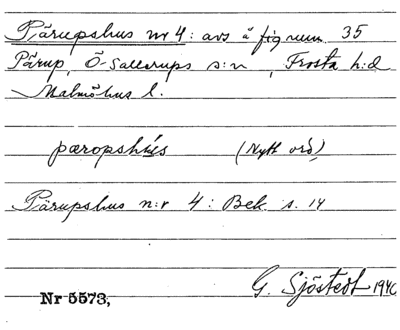 Pärupshus nr 4: avs å fig num. 35
Pärup, Ö-Sallerups s:n, Frosta h:d
Malmöhus l.
pæropshús (Nytt ord)
Pärupshus n:r 4: Bek. s. 14
G. Sjöstedt 1940
Nr 5573,